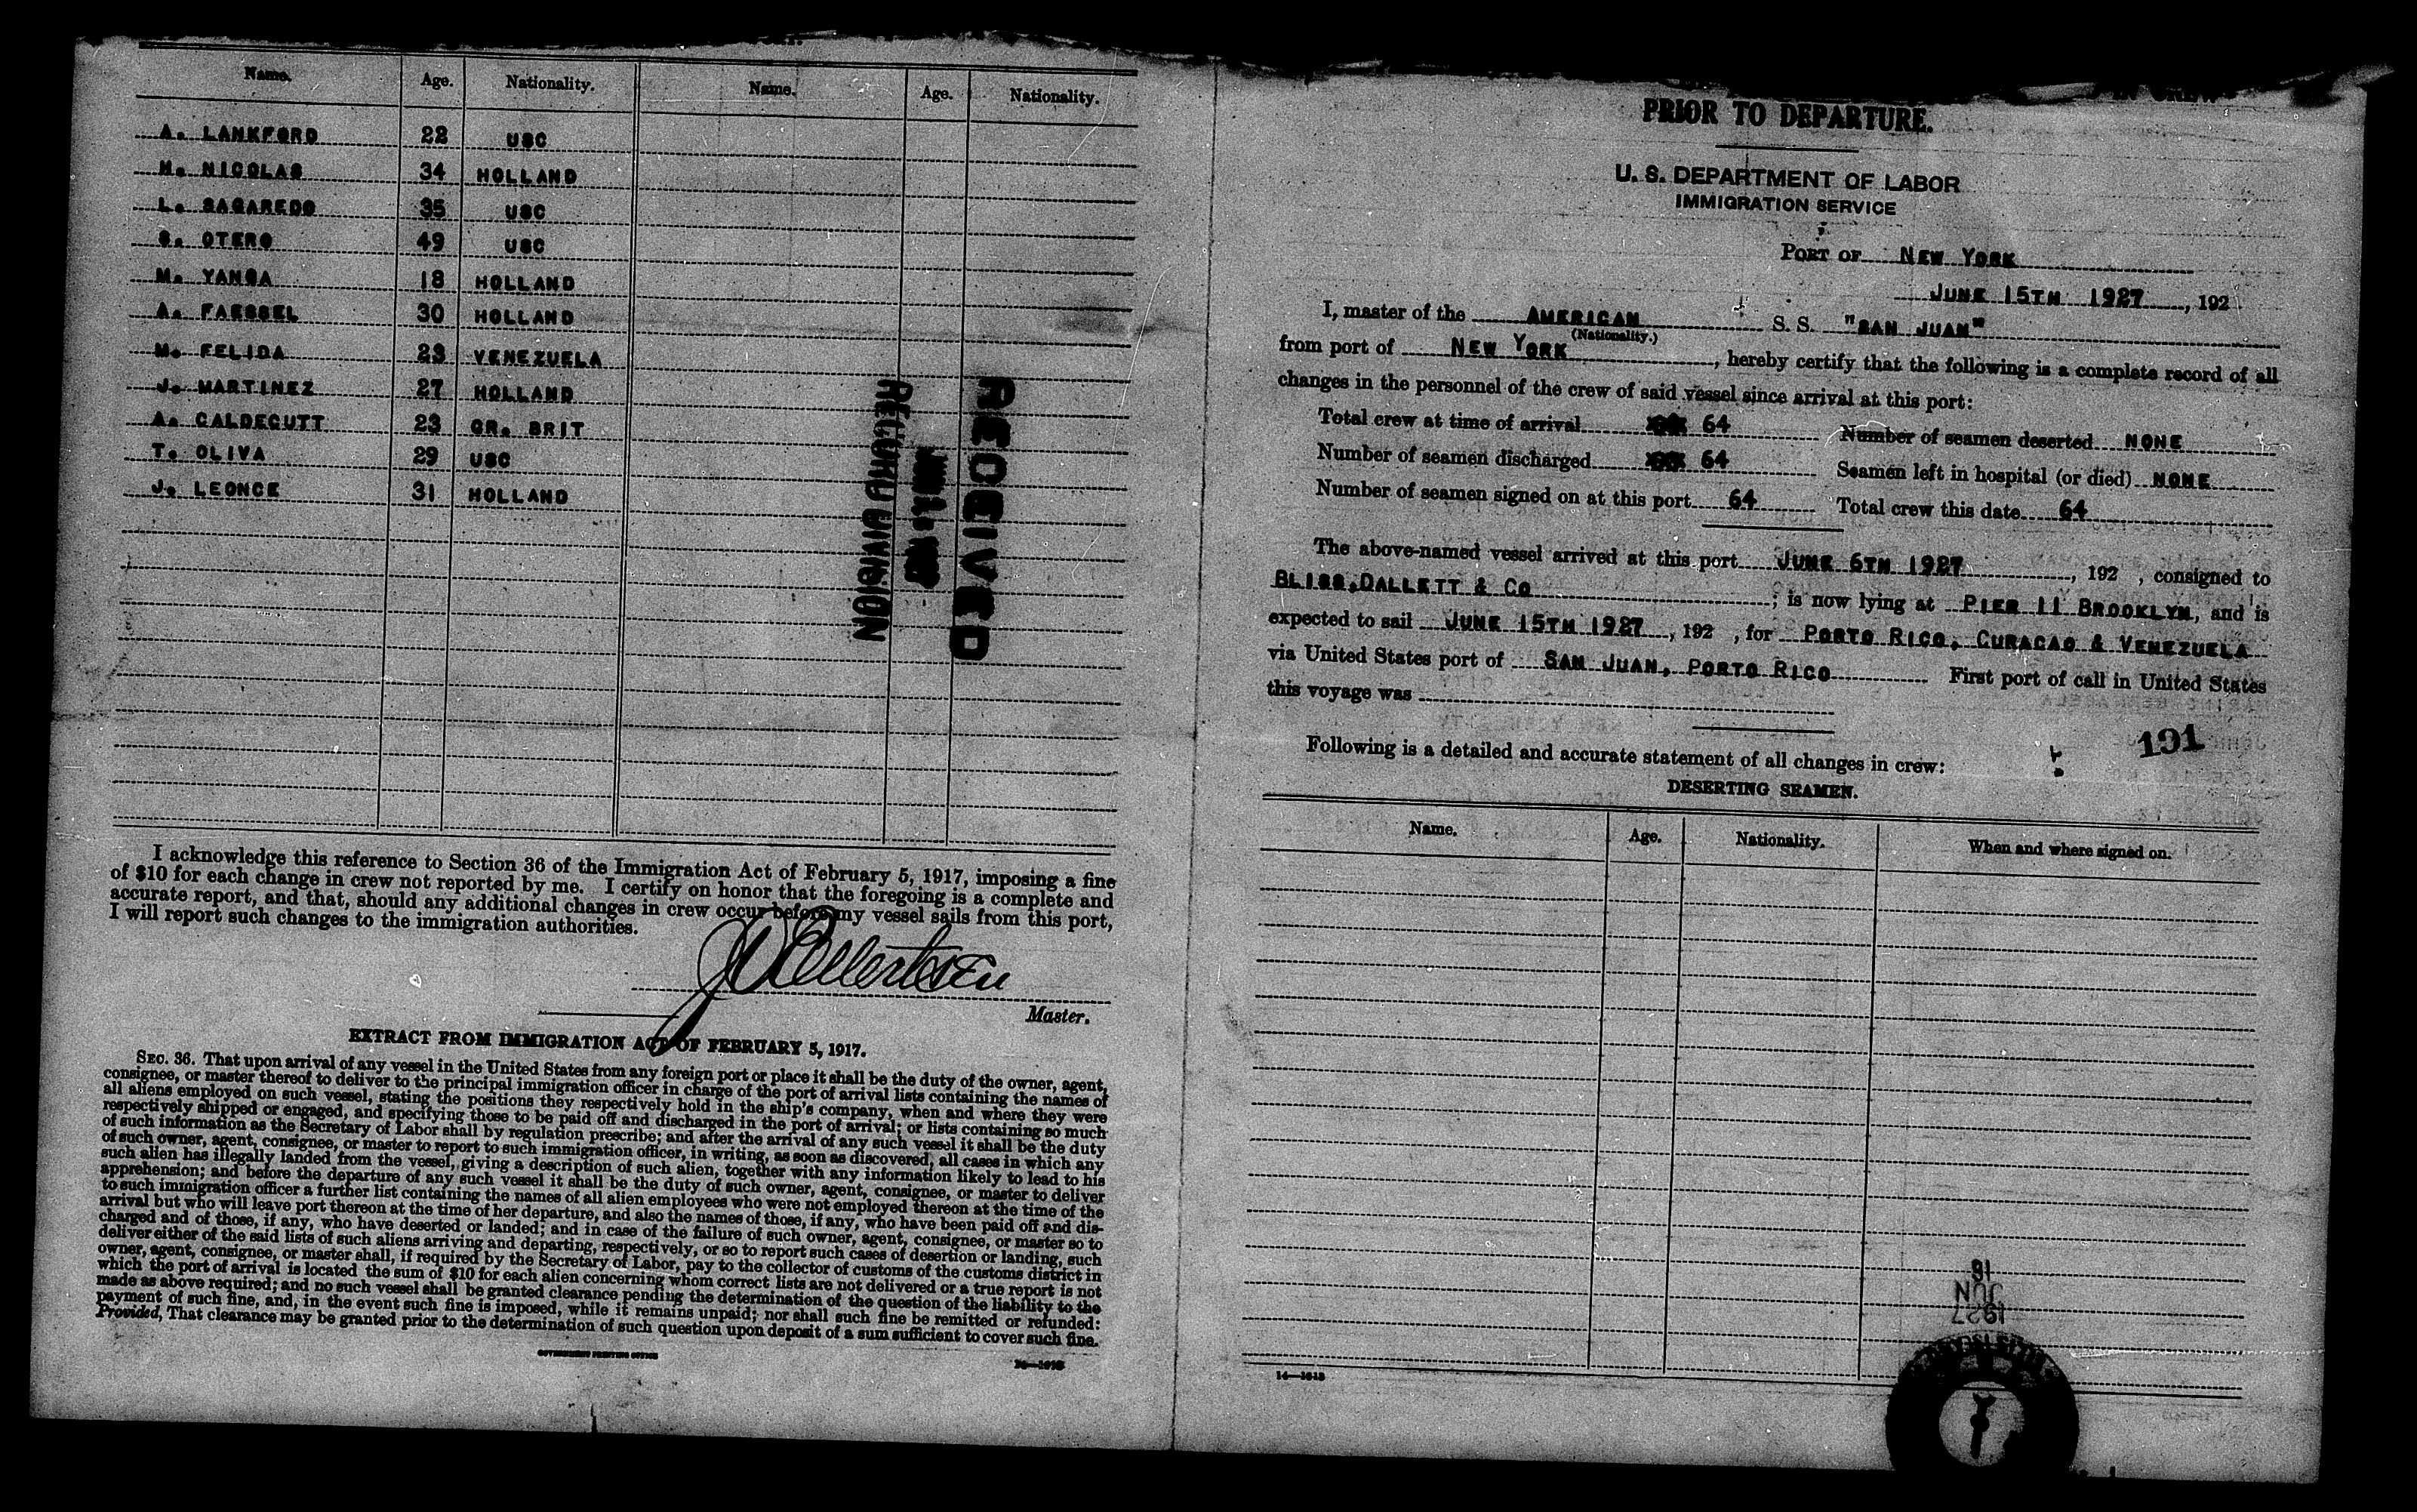 Name. Age. Nationality. Name. Age. Nationality.
A. LANKFORD 22 USC
H. NICOLAS 34 HOLLAND
L. SAGAREDO 35 USC
S. OTERO 49 USC
M. YANGA 18 HOLLAND
A. FAESSEL 30 HOLLAND
M. FELIDA 23 VENEZUELA
J. MARTINEZ 27 HOLLAND
A. CALDECUTT 23 GR. BRIT
T. OLIVA 29 USC
J. LEONCE 31 HOLLAND
RECEIVED
RECORD DIVISION
I acknowledge this reference to Section 36 of the Immigration Act of February 5, 1917, imposing a fine
of $10 for each change in crew not reported by me. I certify on honor that the foregoing is a complete and
accurate report, and that, should any additional changes in crew occur before my vessel sails from this port,
I will report such changes to the immigration authorities.
Master.
EXTRACT FROM IMMIGRATION ACT OF FEBRUARY 5, 1917.
SEC. 36. That upon arrival of any vessel in the United States from any foreign port or place it shall be the duty of the owner, agent,
consignee, or master thereof to deliver to the principal immigration officer in charge of the port of arrival lists containing the names of
all aliens employed on such vessel, stating the positions they respectively hold in the ship's company, when and where they were
respectively shipped or engaged, and specifying those to be paid off and discharged in the port of arrival; or lists containing so much
of such information as the Secretary of Labor shall by regulation prescribe; and after the arrival of any such vessel it shall be the duty
of such owner, agent, consignee, or master to report to such immigration officer, in writing, as soon as discovered, all cases in which any
such alien has illegally landed from the vessel, giving a description of such alien, together with any information likely to lead to his
apprehension; and before the departure of any such vessel it shall be the duty of such owner, agent, consignee, or master to deliver
to such immigration officer a further list containing the names of all alien employees who were not employed thereon at the time of the
arrival but who will leave port thereon at the time of her departure, and also the names of those, if any, who have been paid off and dis-
charged and of those, if any, who have deserted or landed; and in case of the failure of such owner, agent, consignee, or master so to
deliver either of the said lists of such aliens arriving and departing, respectively, or so to report such cases of desertion or landing, such
owner, agent, consignee, or master shall, if required by the Secretary of Labor, pay to the collector of customs of the customs district in
which the port of arrival is located the sum of $10 for each alien concerning whom correct lists are not delivered or a true report is not
made as above required; and no such vessel shall be granted clearance pending the determination of the question of the liability to the
payment of such fine, and, in the event such fine is imposed, while it remains unpaid; nor shall such fine be remitted or refunded:
Provided, That clearance may be granted prior to the determination of such question upon deposit of a sum sufficient to cover such fine.
GOVERNMENT PRINTING OFFICE
PRIOR TO DEPARTURE.
U. S. DEPARTMENT OF LABOR
IMMIGRATION SERVICE
PORT OF NEW YORK
JUNE 15TH 1927, 192
I, master of the AMERICAN S. S. "SAN JUAN"
(Nationality.)
from port of NEW YORK, hereby certify that the following is a complete record of all
changes in the personnel of the crew of said vessel since arrival at this port:
Total crew at time of arrival 64 Number of seamen deserted NONE
Number of seamen discharged 64 Seamen left in hospital (or died) NONE
Number of seamen signed on at this port 64 Total crew this date 64
The above-named vessel arrived at this port JUNE 6TH 1927, 192 , consigned to
BLISS, DALLETT & CO; is now lying at PIER 11 BROOKLYN, and is
expected to sail JUNE 15TH 1927, 192 , for PORTO RICO, CURACAO & VENEZUELA
via United States port of SAN JUAN, PORTO RICO First port of call in United States
this voyage was
191
Following is a detailed and accurate statement of all changes in crew:
DESERTING SEAMEN.
Name. Age. Nationality. When and where signed on.
16
JUN
1927